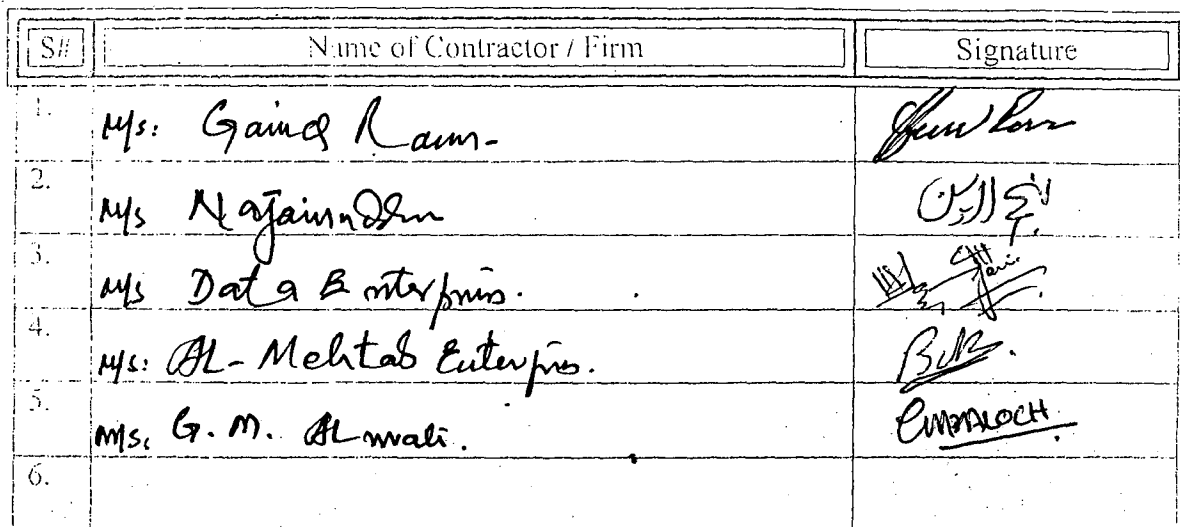 S# Name of Contractor / Firm Signature
1. M/s: Gaind Ram-
2. M/s Najamuddin نجم الدين
3. M/s Data Enterpris.
4. M/s: AL-Mehtab Enterpris.
5. M/s. G. M.
6.